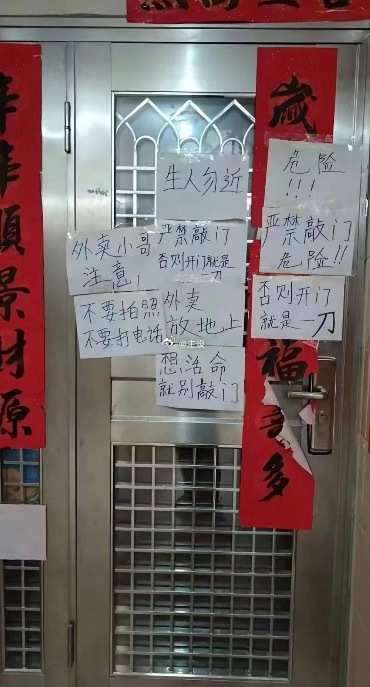 年年順景財源
外卖小哥
注意!
不要拍照
不要打电话
生人勿近
严禁敲门
否则开门就是
一刀
外卖
放地上
想活命
就别敲门
歲
危险
!!!
严禁敲门
危险!!
否则开门
就是一刀
福
多